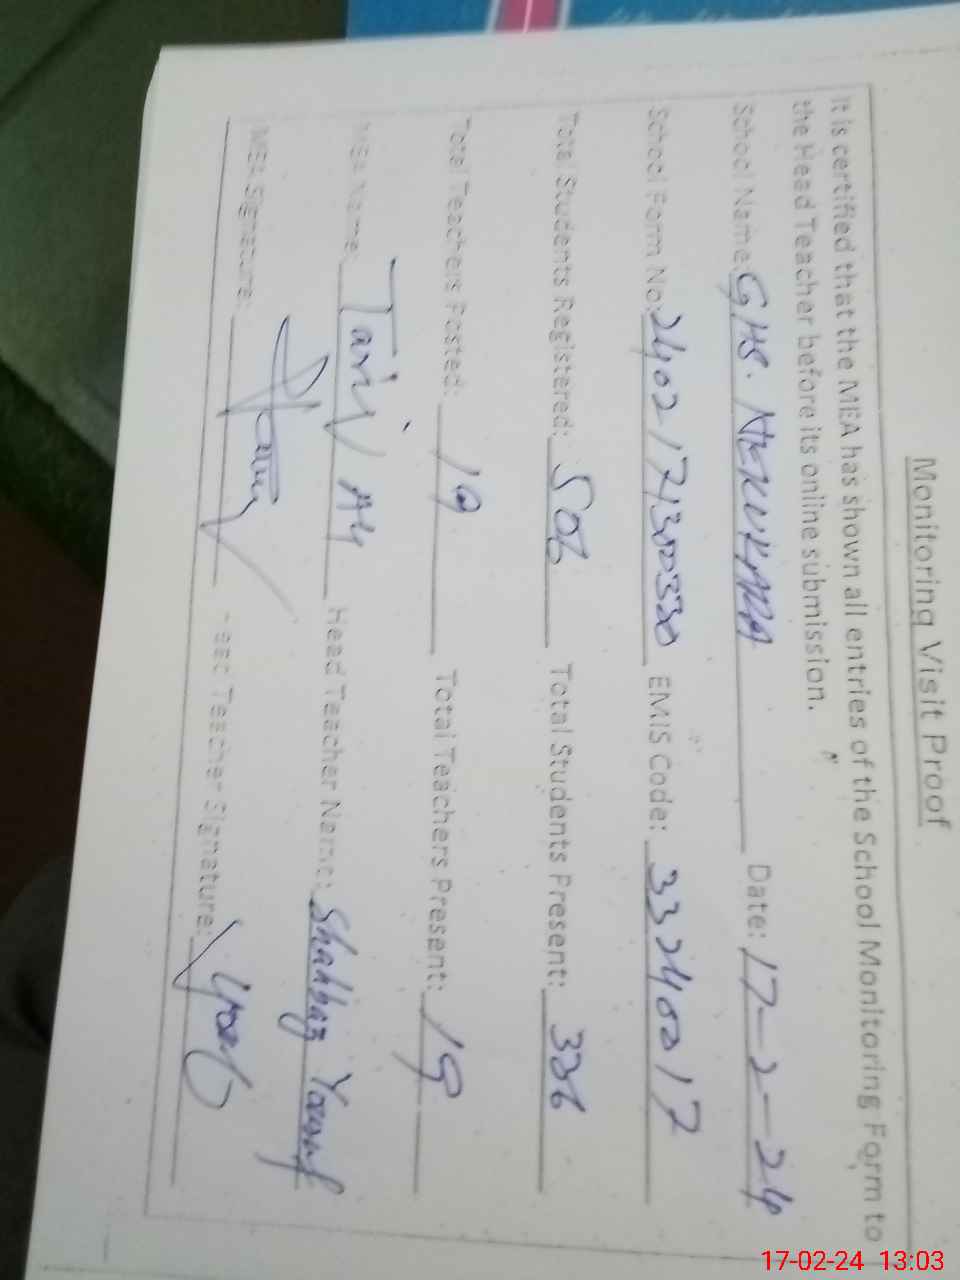 Monitoring Visit Proof
It is certified that the MEA has shown all entries of the School Monitoring Form to
the Head Teacher before its online submission.
School Name: GHS. Date: 17-2-24
School Form No: 2402171300330 EMIS Code: 33240017
Total Students Registered: 506 Total Students Present: 336
Total Teachers Posted: 19 Total Teachers Present: 19
MEA Name: Tariq Ali Head Teacher Name: Shahbaz Yousuf
MEA Signature: Head Teacher Signature:
17-02-24 13:03